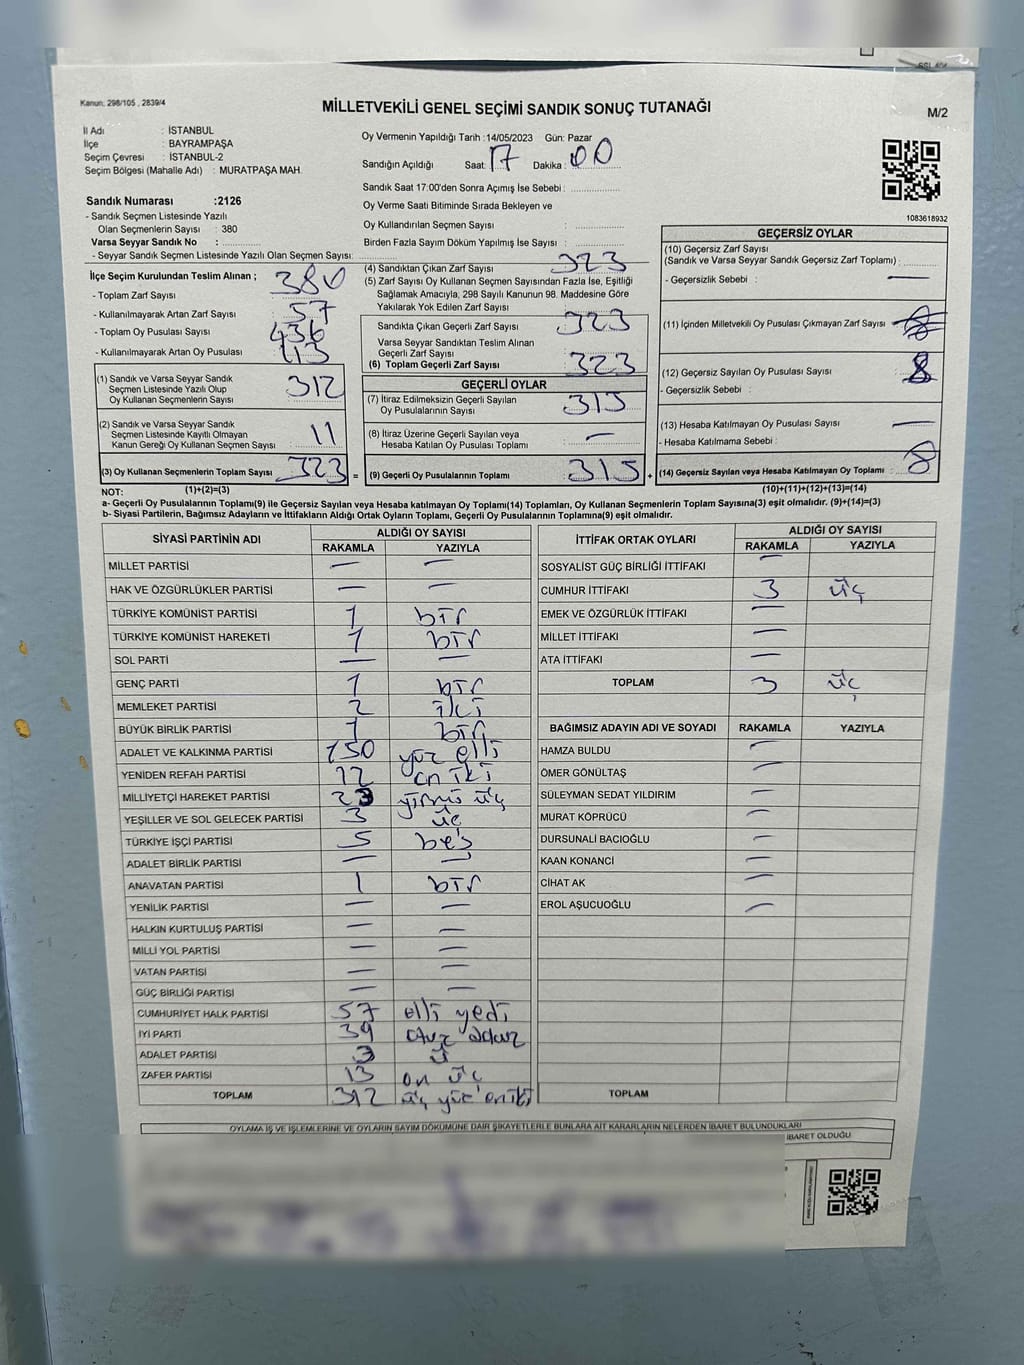 Kanun: 298/105 , 2839/4
MİLLETVEKİLİ GENEL SEÇİMİ SANDIK SONUÇ TUTANAĞI
M/2
İl Adı : İSTANBUL
İlçe : BAYRAMPAŞA
Seçim Çevresi : İSTANBUL-2
Seçim Bölgesi (Mahalle Adı) : MURATPAŞA MAH.
Oy Vermenin Yapıldığı Tarih :14/05/2023 Gün: Pazar
Sandığın Açıldığı Saat: 17 Dakika : 00
Sandık Saat 17:00'den Sonra Açımış İse Sebebi :
Oy Verme Saati Bitiminde Sırada Bekleyen ve
Oy Kullandırılan Seçmen Sayısı :
Birden Fazla Sayım Döküm Yapılmış İse Sayısı :
1083618932
Sandık Numarası :2126
- Sandık Seçmen Listesinde Yazılı
Olan Seçmenlerin Sayısı : 380
Varsa Seyyar Sandık No :
- Seyyar Sandık Seçmen Listesinde Yazılı Olan Seçmen Sayısı:
İlçe Seçim Kurulundan Teslim Alınan ;
- Toplam Zarf Sayısı 380
- Kullanılmayarak Artan Zarf Sayısı 57
- Toplam Oy Pusulası Sayısı 436
- Kullanılmayarak Artan Oy Pusulası 113
(1) Sandık ve Varsa Seyyar Sandık
Seçmen Listesinde Yazılı Olup
Oy Kullanan Seçmenlerin Sayısı 312
(2) Sandık ve Varsa Seyyar Sandık
Seçmen Listesinde Kayıtlı Olmayan
Kanun Gereği Oy Kullanan Seçmen Sayısı 11
(3) Oy Kullanan Seçmenlerin Toplam Sayısı 323 =
(4) Sandıktan Çıkan Zarf Sayısı 323
(5) Zarf Sayısı Oy Kullanan Seçmen Sayısından Fazla İse, Eşitliği
Sağlamak Amacıyla, 298 Sayılı Kanunun 98. Maddesine Göre
Yakılarak Yok Edilen Zarf Sayısı :
Sandıkta Çıkan Geçerli Zarf Sayısı 323
Varsa Seyyar Sandıktan Teslim Alınan
Geçerli Zarf Sayısı
(6) Toplam Geçerli Zarf Sayısı 323
GEÇERLİ OYLAR
(7) İtiraz Edilmeksizin Geçerli Sayılan
Oy Pusulalarının Sayısı 315
(8) İtiraz Üzerine Geçerli Sayılan veya
Hesaba Katılan Oy Pusulası Toplamı : —
(9) Geçerli Oy Pusulalarının Toplamı 315 +
GEÇERSİZ OYLAR
(10) Geçersiz Zarf Sayısı
(Sandık ve Varsa Seyyar Sandık Geçersiz Zarf Toplamı) :
- Geçersizlik Sebebi : —
(11) İçinden Milletvekili Oy Pusulası Çıkmayan Zarf Sayısı
(12) Geçersiz Sayılan Oy Pusulası Sayısı 8
- Geçersizlik Sebebi :
(13) Hesaba Katılmayan Oy Pusulası Sayısı —
- Hesaba Katılmama Sebebi :
(14) Geçersiz Sayılan veya Hesaba Katılmayan Oy Toplamı 8
NOT: (1)+(2)=(3)
(10)+(11)+(12)+(13)=(14)
a- Geçerli Oy Pusulalarının Toplamı(9) ile Geçersiz Sayılan veya Hesaba katılmayan Oy Toplamı(14) Toplamları, Oy Kullanan Seçmenlerin Toplam Sayısına(3) eşit olmalıdır. (9)+(14)=(3)
b- Siyasi Partilerin, Bağımsız Adayların ve İttifakların Aldığı Ortak Oyların Toplamı, Geçerli Oy Pusulalarının Toplamına(9) eşit olmalıdır.
SİYASİ PARTİNİN ADI ALDIĞI OY SAYISI
RAKAMLA YAZIYLA
MİLLET PARTİSİ — —
HAK VE ÖZGÜRLÜKLER PARTİSİ — —
TÜRKİYE KOMÜNİST PARTİSİ 1 bir
TÜRKİYE KOMÜNİST HAREKETİ 1 bir
SOL PARTİ — —
GENÇ PARTİ 1 bir
MEMLEKET PARTİSİ 2 iki
BÜYÜK BİRLİK PARTİSİ 1 bir
ADALET VE KALKINMA PARTİSİ 150 yüz elli
YENİDEN REFAH PARTİSİ 12 on iki
MİLLİYETÇİ HAREKET PARTİSİ 23 yirmi üç
YEŞİLLER VE SOL GELECEK PARTİSİ 3 üç
TÜRKİYE İŞÇİ PARTİSİ 5 beş
ADALET BİRLİK PARTİSİ — —
ANAVATAN PARTİSİ 1 bir
YENİLİK PARTİSİ — —
HALKIN KURTULUŞ PARTİSİ — —
MİLLİ YOL PARTİSİ — —
VATAN PARTİSİ — —
GÜÇ BİRLİĞİ PARTİSİ — —
CUMHURİYET HALK PARTİSİ 57 elli yedi
İYİ PARTİ 39 otuz dokuz
ADALET PARTİSİ 3 ü
ZAFER PARTİSİ 13 on üç
TOPLAM 312 üç yüz on iki
İTTİFAK ORTAK OYLARI ALDIĞI OY SAYISI
RAKAMLA YAZIYLA
SOSYALİST GÜÇ BİRLİĞİ İTTİFAKI —
CUMHUR İTTİFAKI 3 üç
EMEK VE ÖZGÜRLÜK İTTİFAKI —
MİLLET İTTİFAKI —
ATA İTTİFAKI —
TOPLAM 3 üç
BAĞIMSIZ ADAYIN ADI VE SOYADI RAKAMLA YAZIYLA
HAMZA BULDU —
ÖMER GÖNÜLTAŞ —
SÜLEYMAN SEDAT YILDIRIM —
MURAT KÖPRÜCÜ —
DURSUNALİ BACIOĞLU —
KAAN KONANCİ —
CİHAT AK —
EROL AŞUCUOĞLU —
TOPLAM
OYLAMA İŞ VE İŞLEMLERİNE VE OYLARIN SAYIM DÖKÜMÜNE DAİR ŞİKAYETLERLE BUNLARA AİT KARARLARIN NELERDEN İBARET BULUNDUKLARI
İBARET OLDUĞU